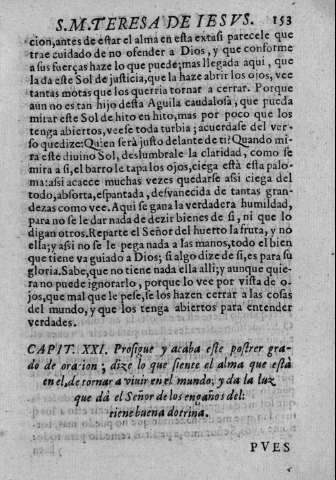 S. M. TERESA DE IESVS. 153
cion, antes de estar el alma en esta extasi parecele que
trae cuidado de no ofender a Dios, y que conforme
a sus fuerças haze lo que puede; mas llegada aqui, que
la da este Sol de justicia, que la haze abrir los ojos, vee
tantas motas que los querria tornar a cerrar. Porque
aun no es tan hijo desta Aguila caudalosa, que pueda
mirar este Sol de hito en hito, mas por poco que los
tenga abiertos, veese toda turbia; acuerdase del ver-
so que dize: Quien serà justo delante de ti? Quando mi-
ra este diuino Sol, deslumbrale la claridad, como se
mira a si, el barro le tapa los ojos, ciega està esta palo-
ma: assi acaece muchas vezes quedarse assi ciega del
todo, absorta, espantada, desvanecida de tantas gran-
dezas como vee. Aqui se gana la verdadera humildad,
para no se le dar nada de dezir bienes de si, ni que lo
digan otros. Reparte el Señor del huerto la fruta, y no
ella; y assi no se le pega nada a las manos, todo el bien
que tiene va guiado a Dios; si algo dize de si, es para su
gloria. Sabe, que no tiene nada ella alli; y aunque quie-
ra no puede ignorarlo, porque lo vee por vista de o-
jos, que mal que le pese, se los hazen cerrar a las cosas
del mundo, y que los tenga abiertos para entender
verdades.
CAPIT. XXI. Prosigue y acaba este postrer gra-
do de oracion; dize lo que siente el alma que està
en el, de tornar a viuir en el mundo; y da la luz
que dà el Señor de los engaños del:
tiene buena dotrina.
PVES